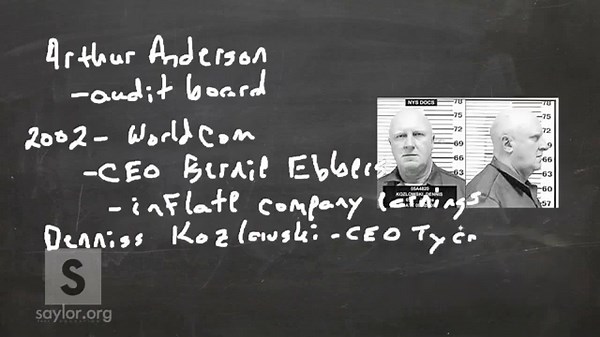 Arthur Anderson
-audit board
2002- WorldCom
-CEO Bernie Ebbers
-inflate company earnings
Denniss Kozlowski -CEO Tyco
NYS DOCS
78
75
72
69
66
63
60
57
05A4820
KOZLOWSKI, DENNIS
78
75
72
69
66
63
60
57
S
saylor.org